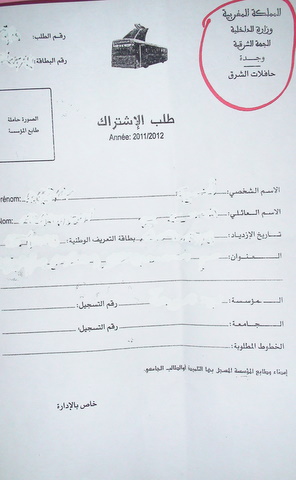 المملكة المغربية
وزارة الداخلية
الجهة الشرقية
وجدة
حافلات الشرق
رقم الطلب:
رقم البطاقة:
الصورة حاملة
طابع المؤسسة
طلب الإشتراك
Année: 2011/2012
الاسم الشخصي: Prénom:
الاسم العائلي: Nom:
تاريخ الإزدياد: بطاقة التعريف الوطنية:
العنوان:
المؤسسة: رقم التسجيل:
الجامعة: رقم التسجيل:
الخطوط المطلوبة:
إمضاء وطابع المؤسسة المسجل بها التلميذ أو الطالب الجامعي.
خاص بالإدارة